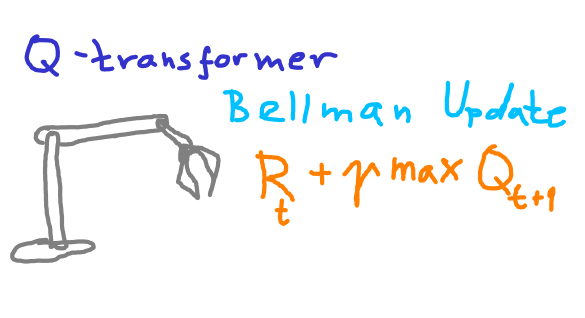 Q-transformer
Bellman Update
R_t + γ max Q_{t+1}